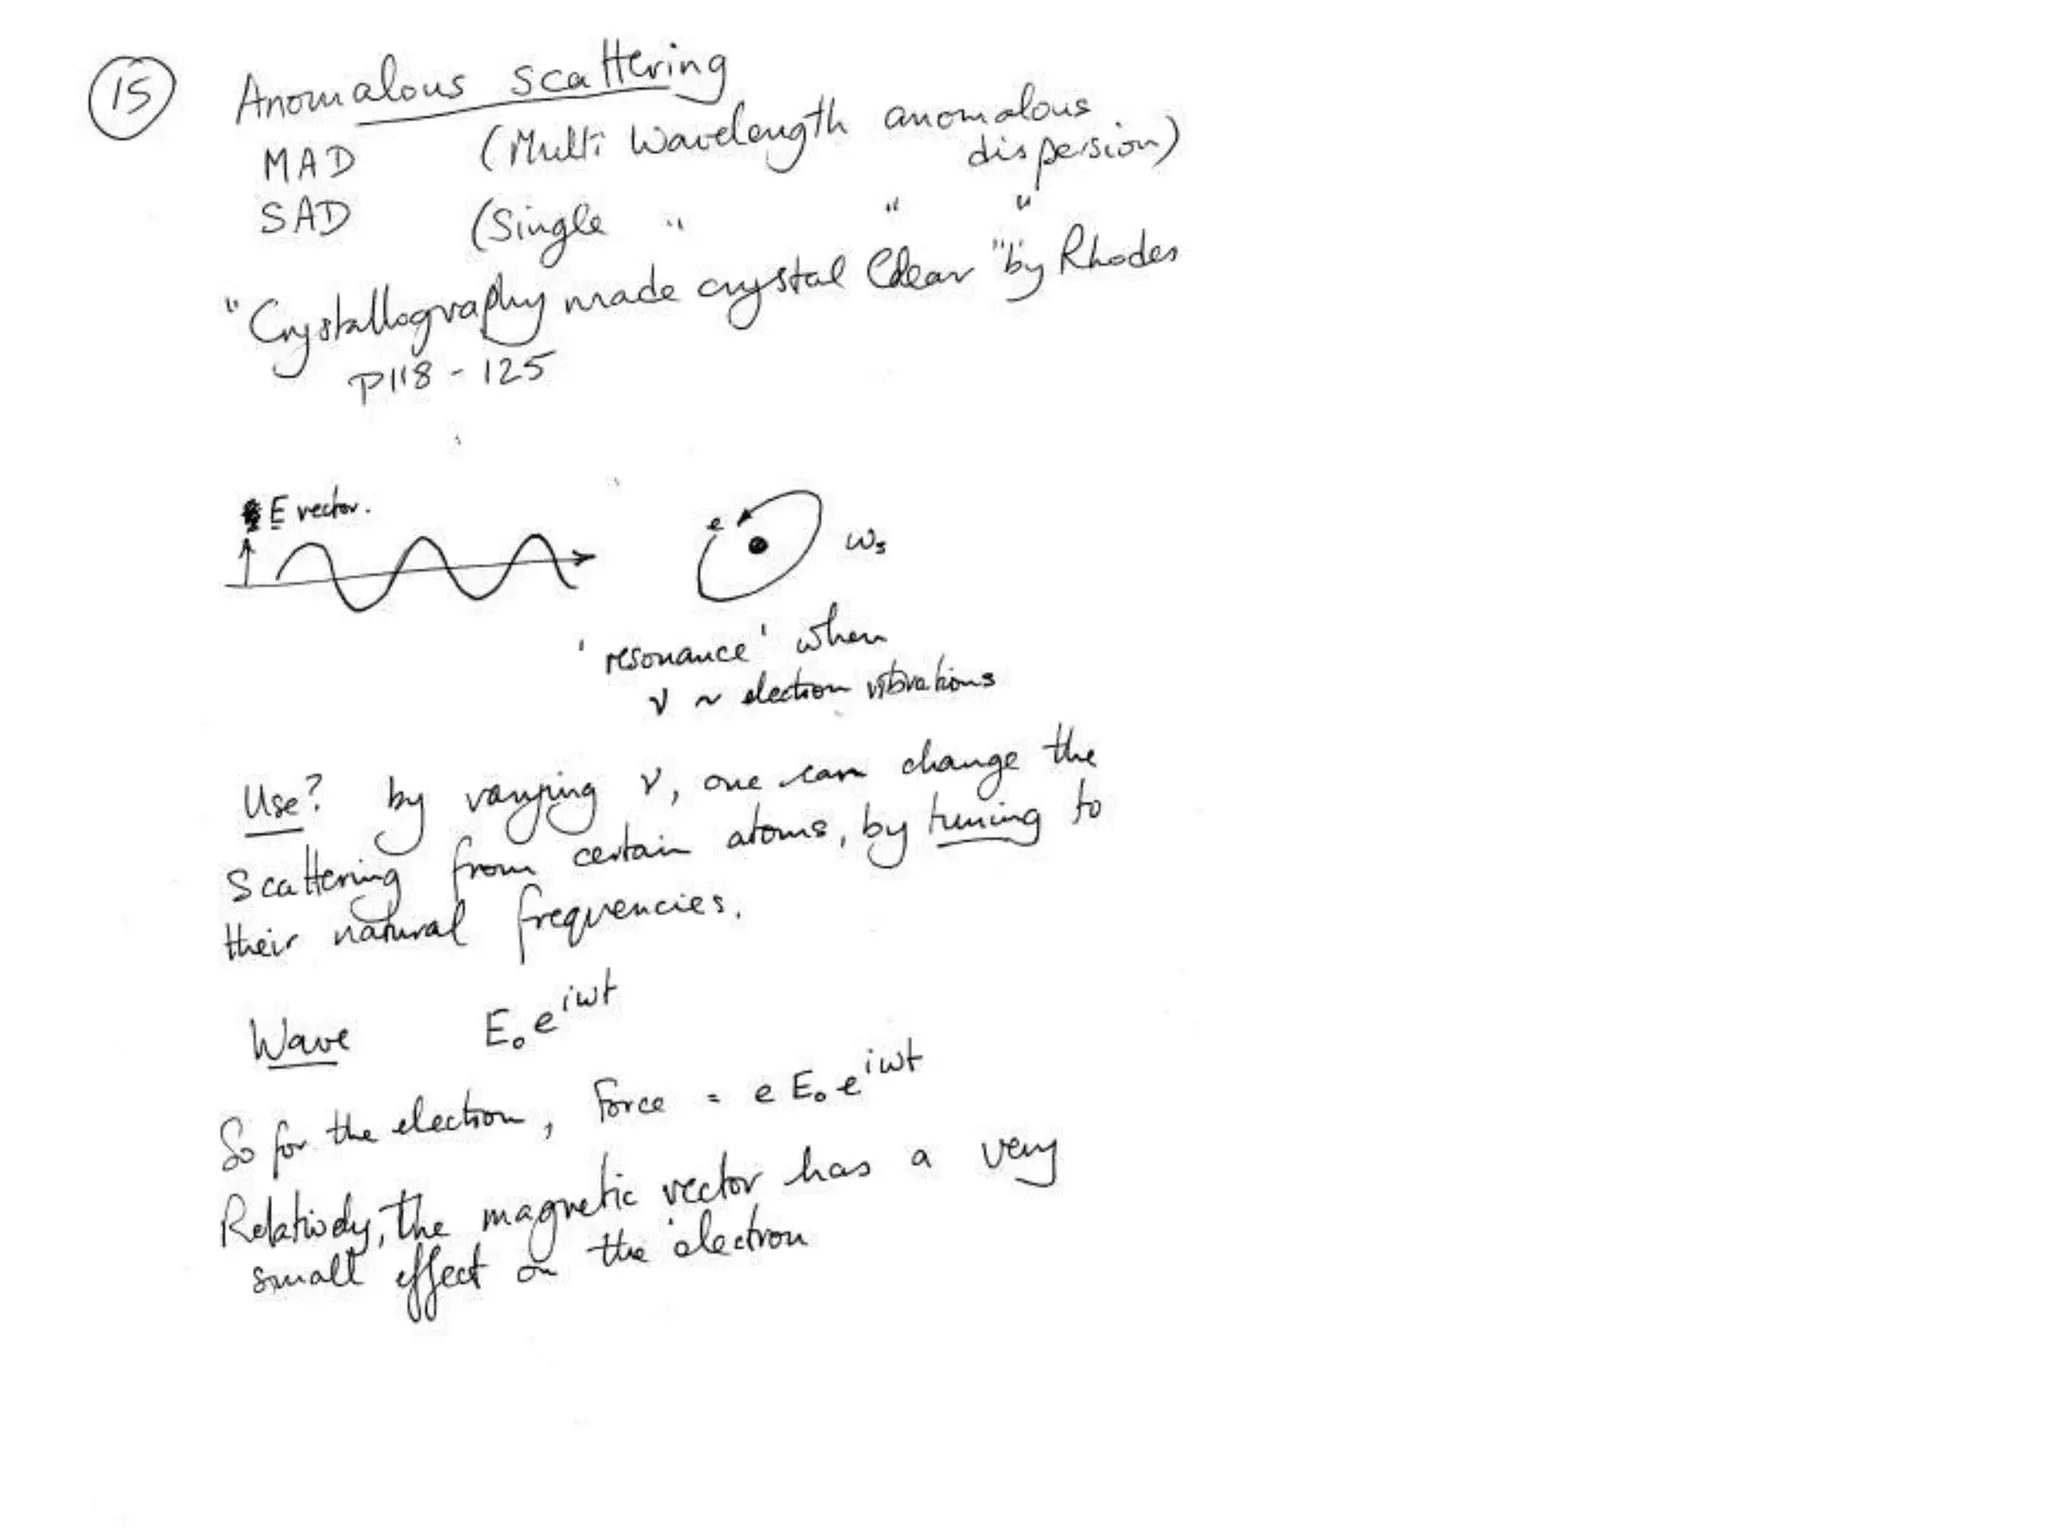 15 Anomalous scattering
MAD (Multi Wavelength anomalous
dispersion)
SAD (Single " " "
"Crystallography made crystal Clear" by Rhodes
P118 - 125
E vector.
e
ωs
'resonance' when
ν ~ electron vibrations
Use? by varying ν, one can change the
scattering from certain atoms, by tuning to
their natural frequencies.
Wave E₀ e^iωt
So for the electron, Force = e E₀ e^iωt
Relatively, the magnetic vector has a very
small effect on the electron